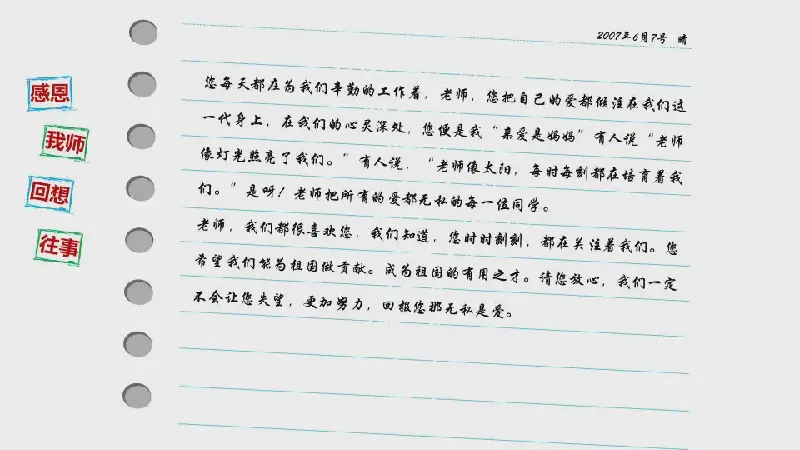 2007年6月7号 晴
感恩
我师
回想
往事
您每天都在为我们辛勤的工作着，老师，您把自己的爱都倾注在我们这
一代身上，在我们的心灵深处，您便是我“亲爱是妈妈”有人说“老师
像灯光照亮了我们。”有人说，“老师像太阳，每时每刻都在培育着我
们。”是呀！老师把所有的爱都无私的每一位同学。
老师，我们都很喜欢您，我们知道，您时时刻刻，都在关注着我们。您
希望我们能为祖国做贡献。成为祖国的有用之才。请您放心，我们一定
不会让您失望，更加努力，回报您那无私是爱。